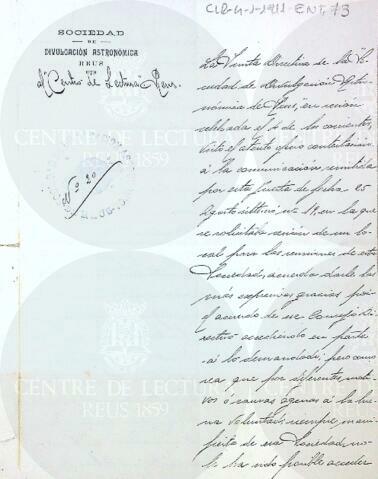 CLR-4-1-1911-ENT, 73
SOCIEDAD
DE
DIVULGACIÓN ASTRONÓMICA
REUS
al "Centro de Lectura" Reus.
Nº 20
La Junta Directiva de la So-
ciedad de Divulgación Astro-
nómica de Reus, en sesión
celebrada el de los corrientes,
visto el atento oficio contestación
á la comunicación remitida
por esta Junta de fecha 25
Agosto último nº 18, en la que
se solicitaba cesión de un lo-
cal para las reuniones de esta
Sociedad, acuerda darle las
más expresivas gracias por
el acuerdo de ese Consejo Di-
rectivo accediendo en parte
á lo demandado; pero como
sea que por diferentes moti-
vos ó causas agenas á la bue-
na voluntad, siempre mani-
fiesta de esa Sociedad, no
le ha sido posible acceder
CENTRE DE LECTURA
REUS 1859
CENTRE DE LECTURA
REUS 1859